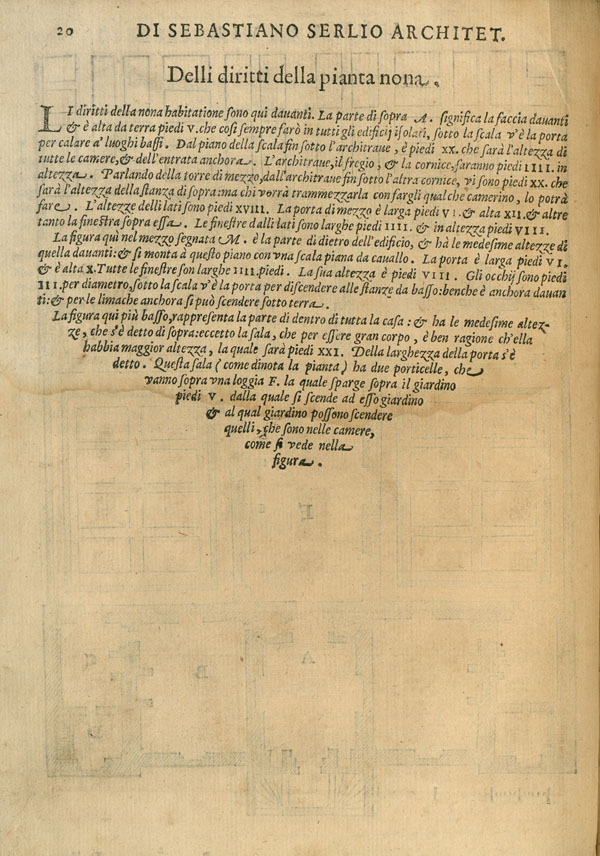 20 DI SEBASTIANO SERLIO ARCHITET.
Delli diritti della pianta nona.
LI diritti della nona habitatione sono quì dauanti. La parte di sopra A. significa la faccia dauanti
& è alta da terra piedi V. che così sempre farò in tutti gli edificij isolati, sotto la scala v'è la porta
per calare a' luoghi bassi. Dal piano della scala fin sotto l'architraue, è piedi XX. che sarà l'altezza di
tutte le camere, & dell'entrata anchora. L'architraue, il fregio, & la cornice, saranno piedi IIII. in
altezza. Parlando della torre di mezzo, dall'architraue fin sotto l'altra cornice, vi sono piedi XX. che
sarà l'altezza della stanza di sopra: ma chi vorrà trammezzarla con fargli qualche camerino, lo potrà
fare. L'altezze delli lati sono piedi XVIII. La porta di mezzo è larga piedi VI. & alta XII. & altre
tanto la finestra sopra essa. Le finestre dalli lati sono larghe piedi IIII. & in altezza piedi VIII.
La figura quì nel mezzo segnata M. è la parte di dietro dell'edificio, & hà le medesime altezze di
quella dauanti: & si monta à questo piano con vna scala piana da cauallo. La porta è larga piedi VI.
& è alta X. Tutte le finestre son larghe IIII. piedi. La sua altezza è piedi VIII. Gli occhij sono piedi
III. per diametro, sotto la scala v'è la porta per discendere alle stanze da basso: benche è anchora dauan
ti: & per le limache anchora si può scendere sotto terra.
La figura quì più basso, rappresenta la parte di dentro di tutta la casa: & ha le medesime altez-
ze, che s'è detto di sopra: eccetto la sala, che per essere gran corpo, è ben ragione ch'ella
habbia maggior altezza, la quale sarà piedi XXI. Della larghezza della porta s'è
detto. Questa sala (come dinota la pianta) ha due porticelle, che
vanno sopra vna loggia F. la quale sparge sopra il giardino
piedi V. dalla quale si scende ad esso giardino
& al qual giardino possono scendere
quelli, che sono nelle camere,
come si vede nella
figura.